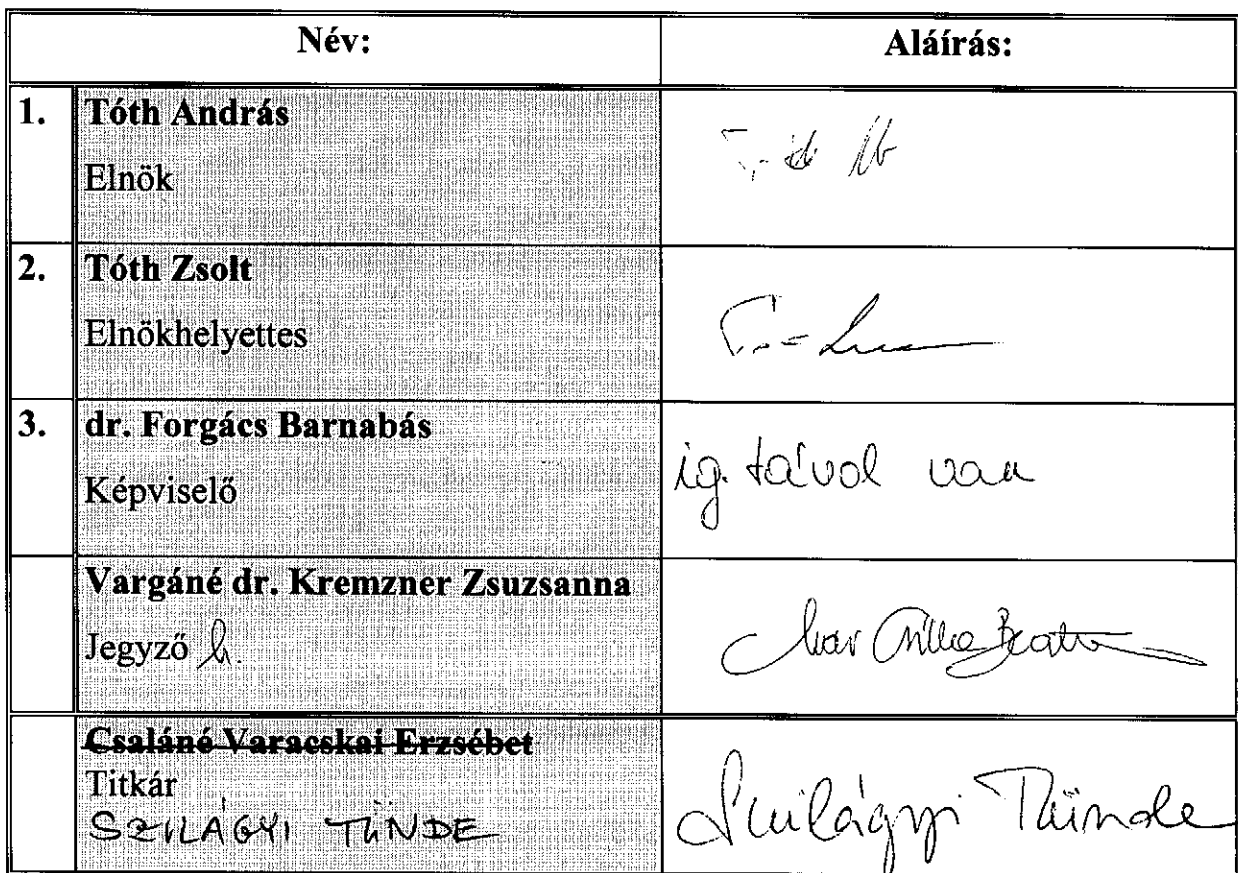 Név: Aláírás:
1. Tóth András
Elnök
2. Tóth Zsolt
Elnökhelyettes
3. dr. Forgács Barnabás
Képviselő ig. távol van
Vargáné dr. Kremzner Zsuzsanna
Jegyző h. Csilla Beata
Csaláné Varacskai Erzsébet
Titkár
SZILÁGYI TÜNDE Szilágyi Tünde